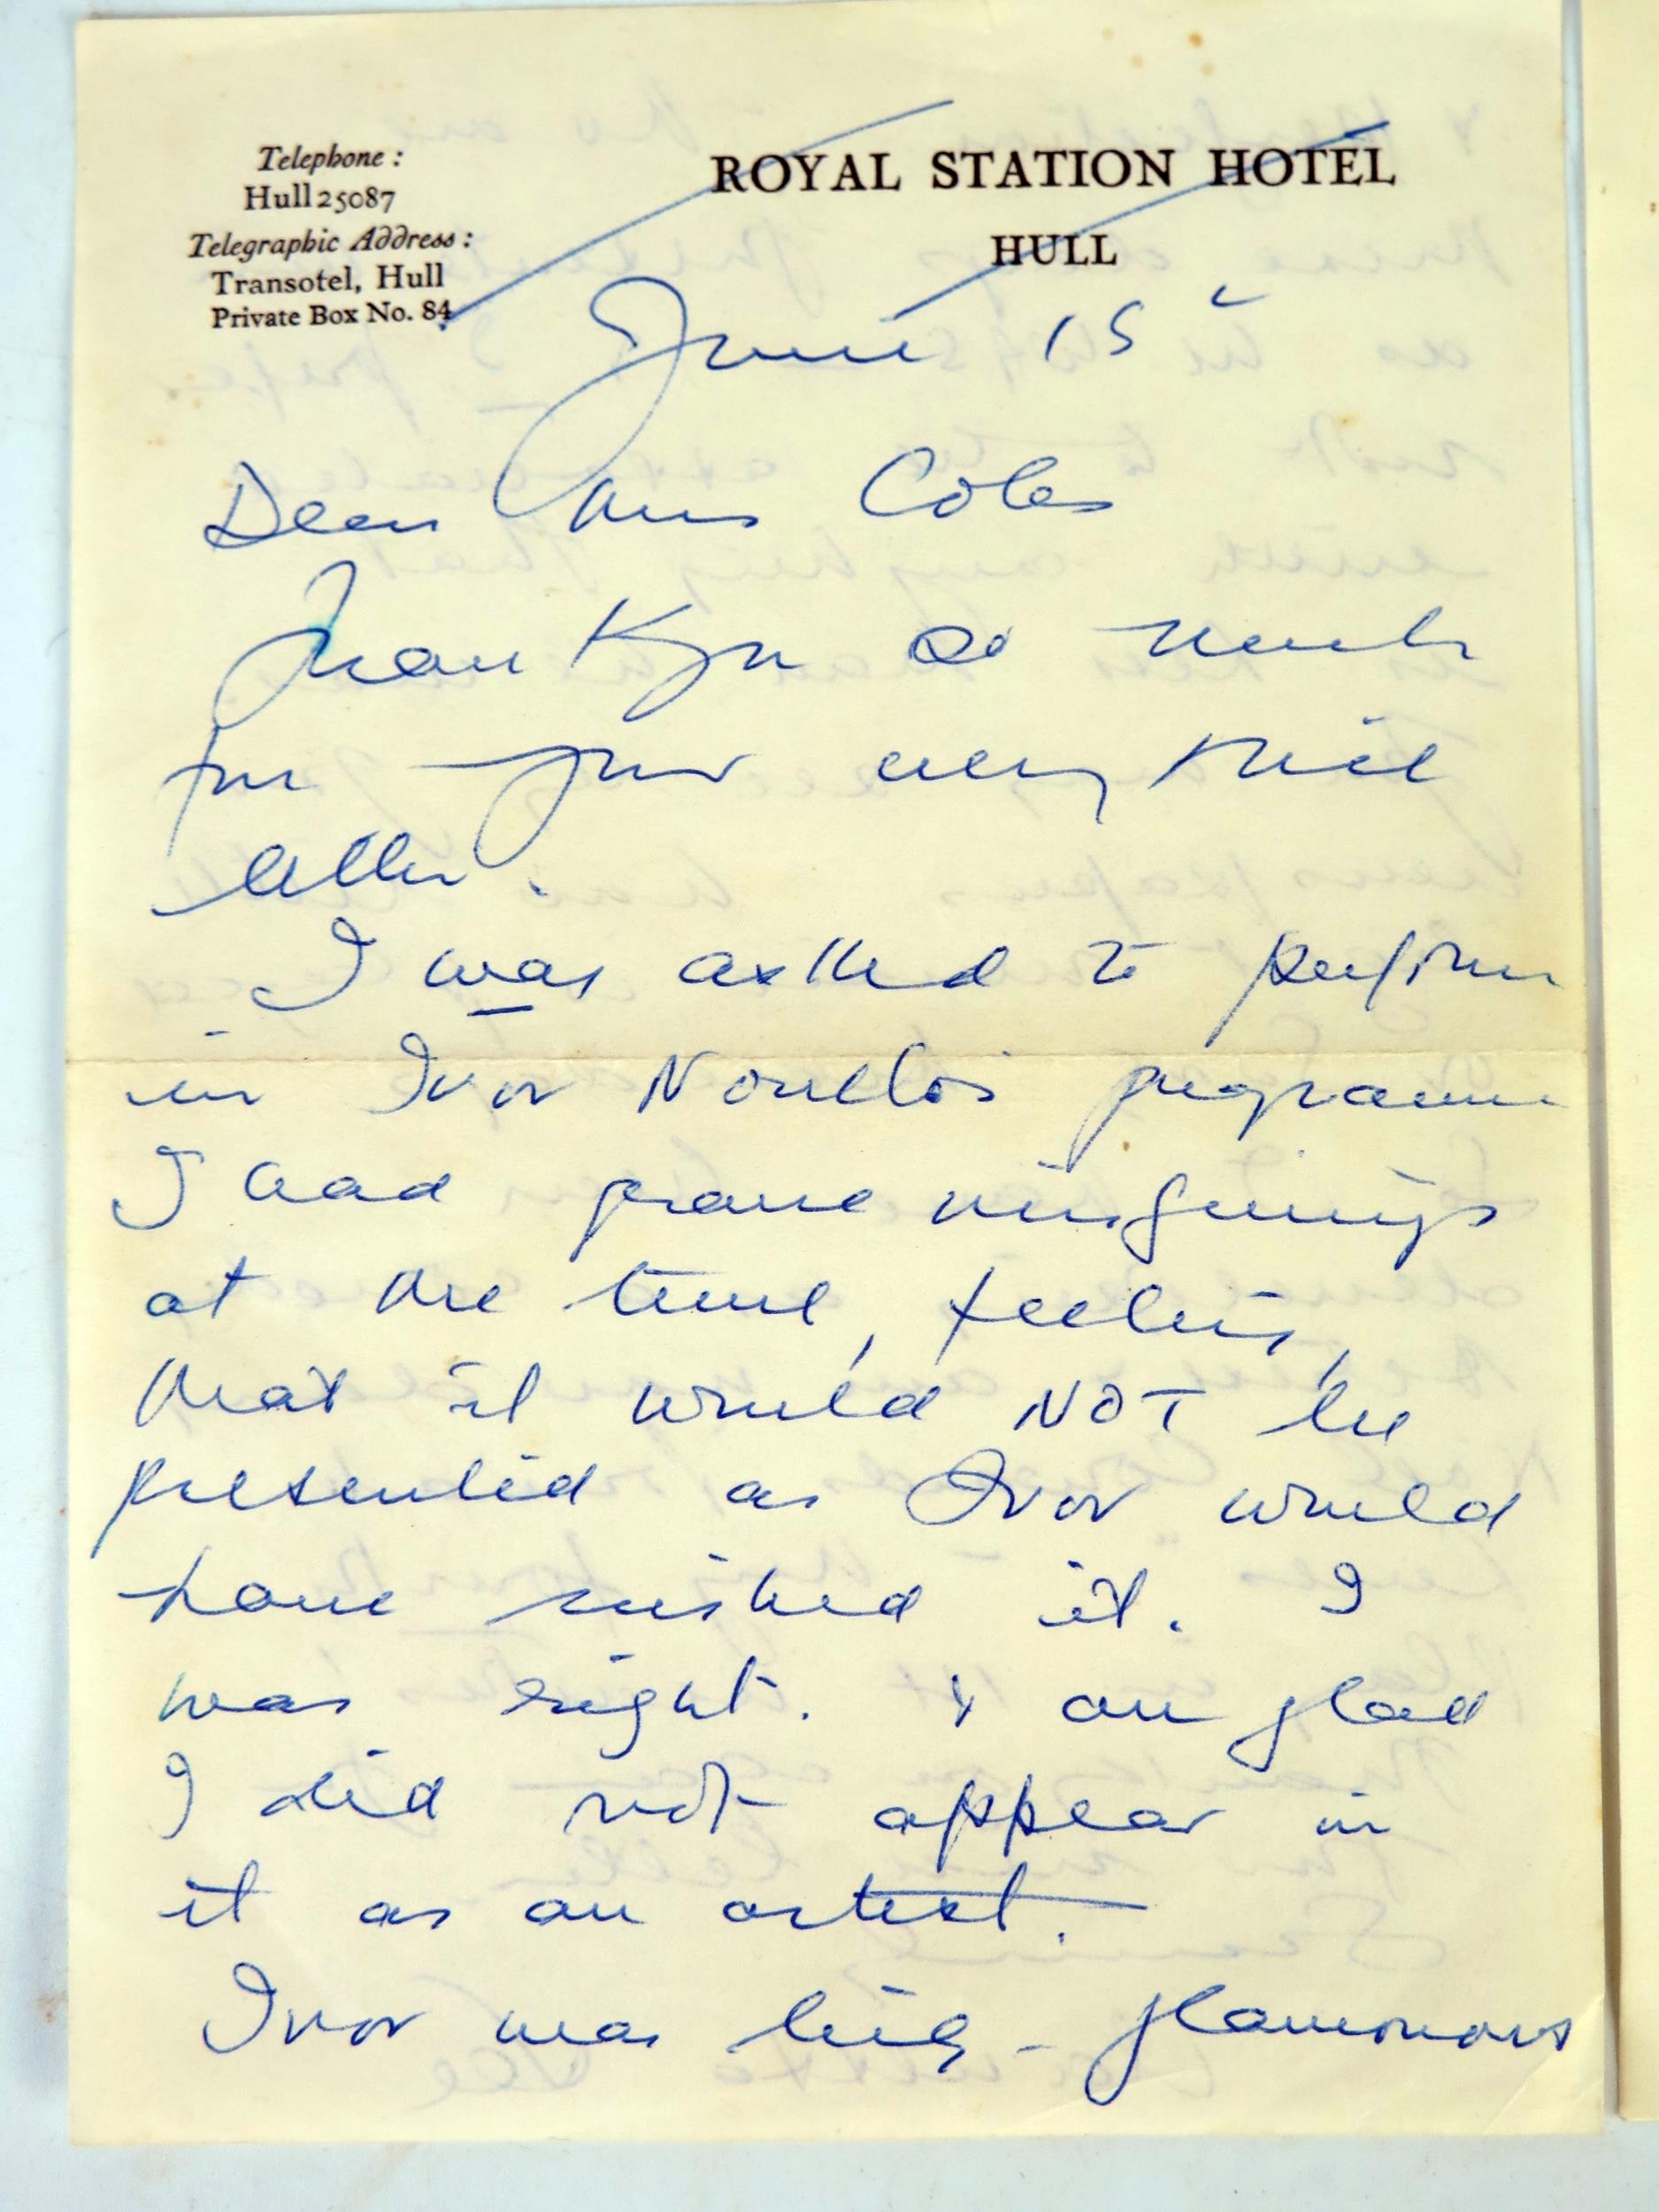 Telephone :
Hull 25087
Telegraphic Address :
Transotel, Hull
Private Box No. 84
ROYAL STATION HOTEL
HULL
June 15
Dear Miss Coles
Thank you so much
for your very nice
letter.
I was asked to perform
in Ivor Novello's programme
I had grave misgivings
at the time, feeling,
that it would NOT be
presented as Ivor would
have wished it. I
was right. & am glad
I did not appear in
it as an artist.
Ivor was big - glamorous